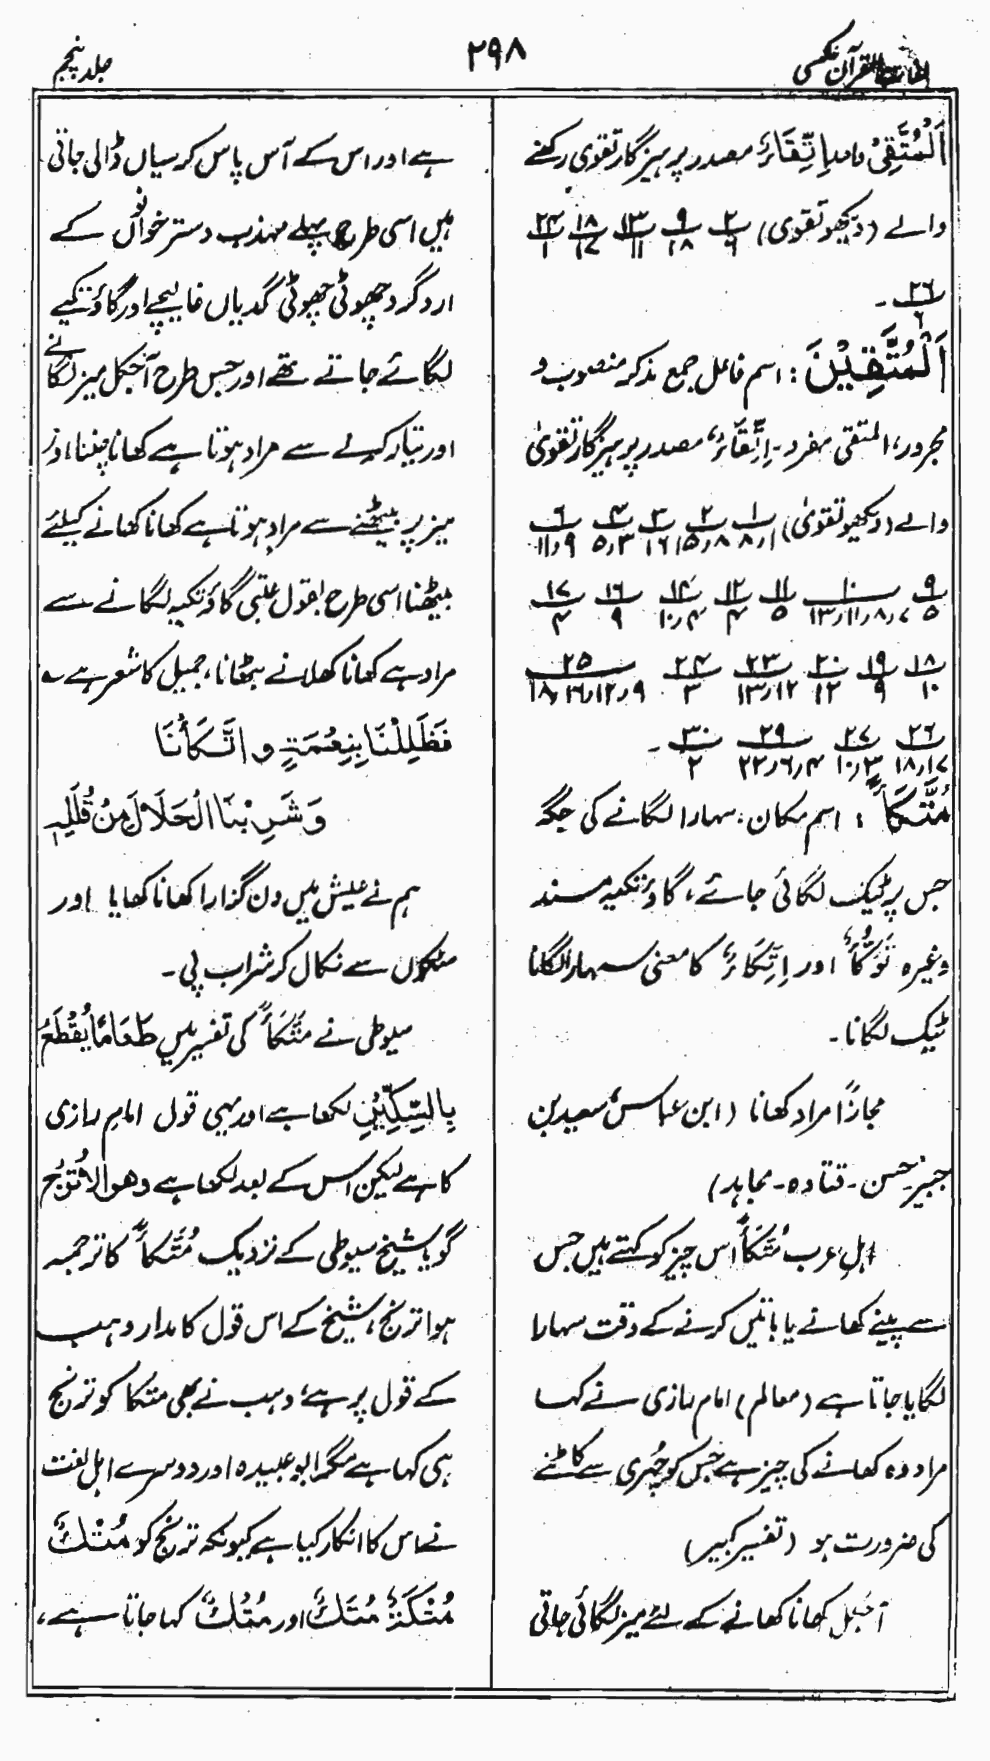 لغات القرآن عکسی
۲۹۸
جلد پنجم
اَلْمُتَّقِیْ واحد اِتِّقَاءٌ مصدر پرہیزگار تقویٰ رکھنے
والے (دیکھو تقویٰ) ۲/۹ ۹/۱۸ ۱۳/۱۱ ۱۸/۱۷ ۲۴/۱
۲۶/۶ ۔
اَلْمُتَّقِیْنَ : اسم فاعل جمع مذکر منصوب و
مجرور، المتقی مفرد۔ اِتِّقَاءٌ، مصدر پرہیزگار تقویٰ
والے (دیکھو تقویٰ) ۱/۱ر۸ ۲/۸ر۸ر۱۵ ۳/۱۶ ۴/۳ر۵ ۶/۹ر۱۱
۹/۵ ۱۰/۷ر۸ر۱۱ر۱۳ ۱۱/۵ ۱۲/۴ ۱۴/۴ر۱۰ ۱۶/۹ ۱۷/۴
۱۸/۱۰ ۱۹/۹ ۲۰/۱۲ ۲۳/۱۲ر۱۳ ۲۴/۳ ۲۵/۹ر۱۲ر۱۶ر۱۸
۲۶/۱۷ر۱۸ ۲۷/۳ر۱۰ ۲۹/۴ر۶ر۲۲ ۳۰/۲ ۔
مُتَّكَأً : اسم مکان، سہارا لگانے کی جگہ
جس پر ٹیک لگائی جائے، گاؤ تکیہ مسند
وغیرہ تَوَكُّأٌ اور اِتِّكَاءٌ کا معنی سہارا لگانا
ٹیک لگانا۔
مجازاً مراد کھانا (ابن عباسؓ سعید بن
جبیر حسن۔ قتادہ۔ مجاہد)
اہل عرب مُتَّكَأً اس چیز کو کہتے ہیں جس
سے پینے کھانے یا باتیں کرنے کے وقت سہارا
لگایا جاتا ہے (معالم) امام رازی نے کہا
مراد وہ کھانے کی چیز ہے جس کو چُھری سے کاٹنے
کی ضرورت ہو (تفسیر کبیر)
آجکل کھانا کھانے کے لئے میز لگائی جاتی
ہے اور اس کے آس پاس کرسیاں ڈالی جاتی
ہیں اسی طرح پہلے مہذب دستر خوانوں کے
اردگرد چھوٹی چھوٹی گدیاں غالیچے اور گاؤ تکیے
لگائے جاتے تھے اور جس طرح آجکل میز لگانے
اور تیار کرنے سے مراد ہوتا ہے کھانا چننا اور
میز پر بیٹھنے سے مراد ہوتا ہے کھانا کھانے کیلئے
بیٹھنا اسی طرح بقول عتبی گاؤ تکیہ لگانے سے
مراد ہے کھانا کھلانے بٹھانا، جمیل کا شعر ہے ؎
فَظَلِلْنَا بِنِعْمَةٍ و اتَّكَأْنَا
وَشَرِبْنَا الْحَلَالَ مِنْ قُلَلِهٖ
ہم نے عیش میں دن گزارا کھانا کھایا اور
مٹکوں سے نکال کر شراب پی۔
سیوطی نے مُتَّكَأً کی تفسیر میں طَعَامًا یُقْطَعُ
بِالسِّكِّیْنِ لکھا ہے اور یہی قول امام رازی
کا ہے لیکن اس کے بعد لکھا ہے وھو الاُتْرُجّ
گویا شیخ سیوطی کے نزدیک مُتَّكَأً کا ترجمہ
ہوا ترنج، شیخ کے اس قول کا مدار وہب
کے قول پر ہے، وہب نے بھی متکا کو ترنج
ہی کہا ہے مگر ابو عبیدہ اور دوسرے اہل لغت
نے اس کا انکار کیا ہے کیونکہ ترنج کو مُتْكٌ
مُتْكَةٌ مُتَكٌ اور مُتُكٌ کہا جاتا ہے،